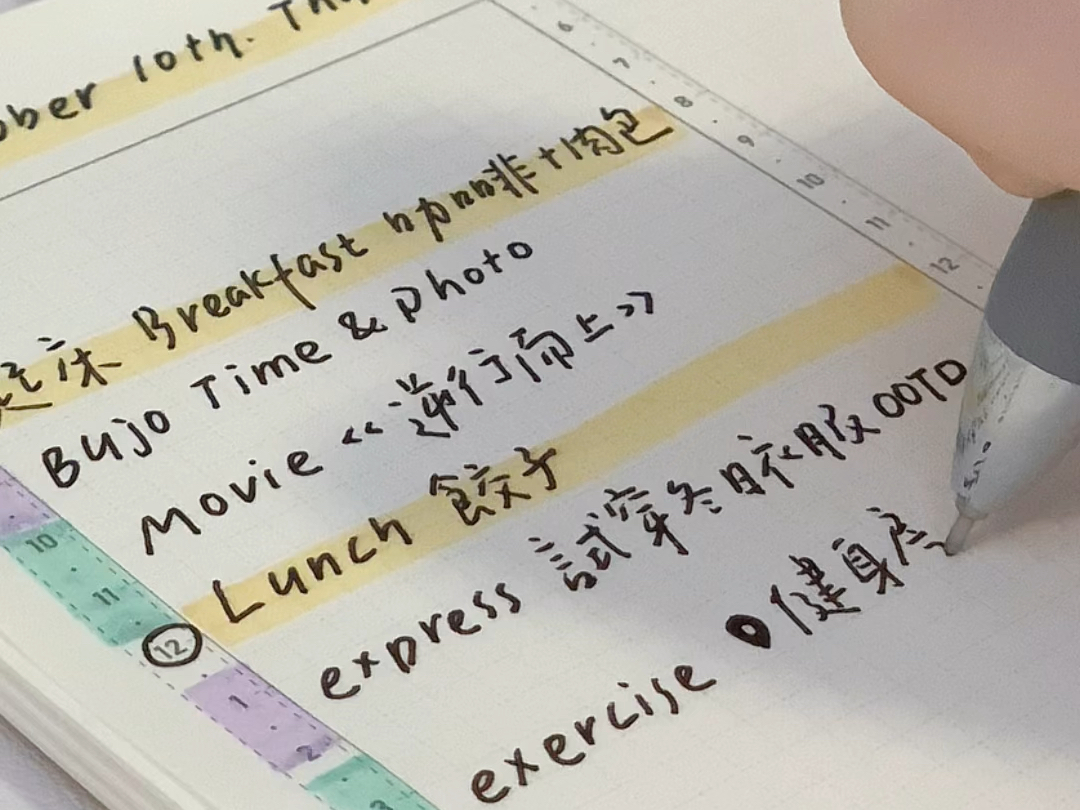 ober 10th. Thu
6 7 8 9 10 11 12
床 Breakfast 咖啡+肉包
Bujo Time & photo
Movie 《逆行而上》
Lunch 餃子
express 試穿冬日衣服 OOTD
exercise 健身
10
11
12
1
2
3